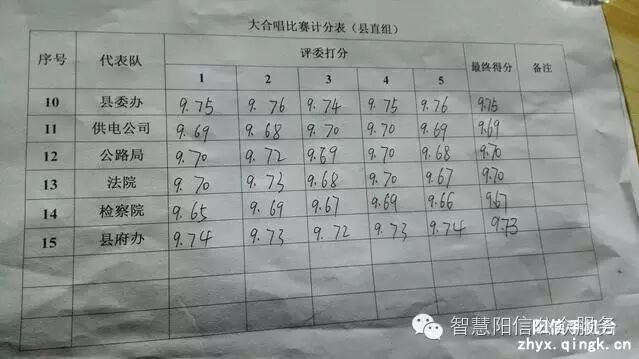 大合唱比赛计分表（县直组）
序号 代表队 评委打分 最终得分 备注
1 2 3 4 5
10 县委办 9.75 9.76 9.74 9.75 9.76 9.75
11 供电公司 9.69 9.68 9.70 9.70 9.69 9.69
12 公路局 9.70 9.72 9.69 9.70 9.68 9.70
13 法院 9.70 9.73 9.68 9.70 9.67 9.70
14 检察院 9.65 9.69 9.67 9.69 9.66 9.67
15 县府办 9.74 9.73 9.72 9.73 9.74 9.73
智慧阳信
阳信手机台
zhyx.qingk.cn